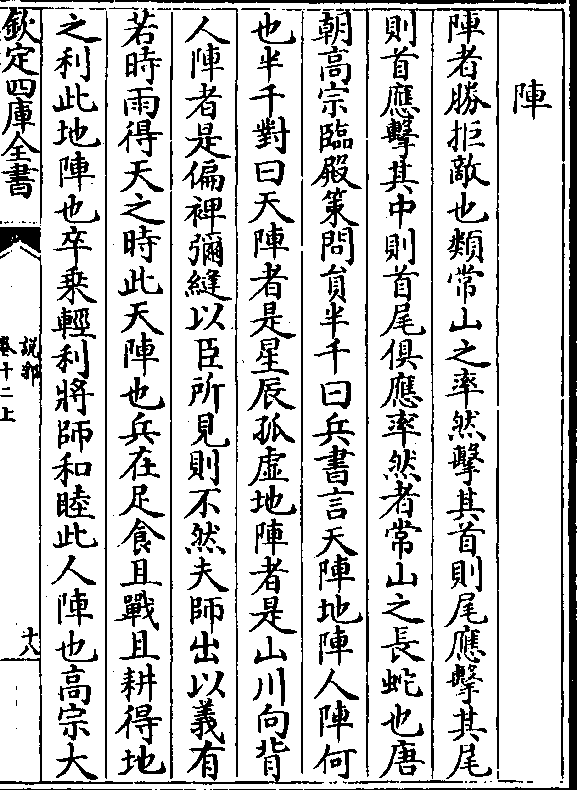 陣
陣者勝拒敵也類常山之率然擊其首則尾應擊其尾
則首應擊其中則首尾俱應率然者常山之長蛇也唐
朝高宗臨殿策問貟半千曰兵書言天陣地陣人陣何
也半千對曰天陣者是星辰孤虛地陣者是山川向背
人陣者是偏裨彌縫以臣所見則不然夫師出以義有
若時雨得天之時此天陣也兵在足食且戰且耕得地
之利此地陣也卒乘輕利將師和睦此人陣也高宗大
欽定四庫全書
說郛
卷十二上
十八